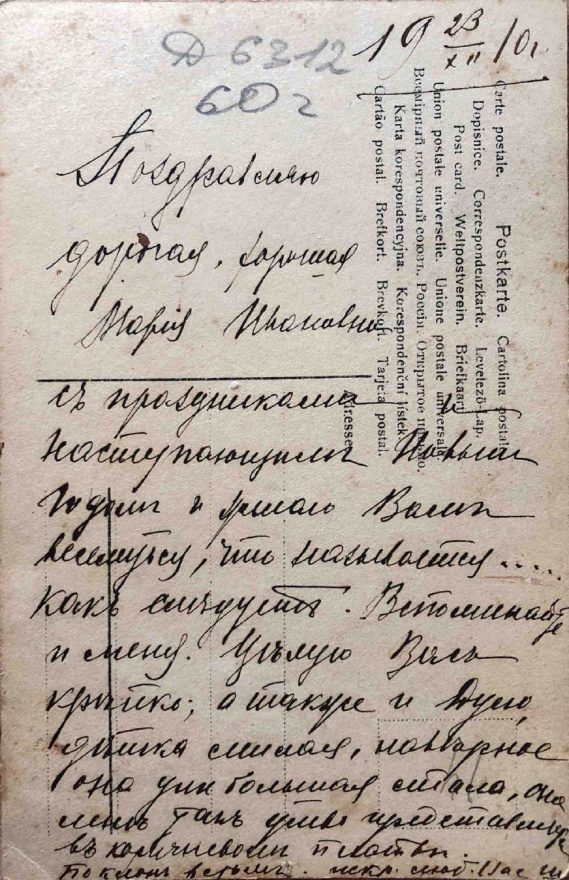 Д 6312
60 г
19 23/XII 10 г
Carte postale. Postkarte. Cartolina postale.
Dopisnice. Correspondenzkarte. Levelező-Lap.
Post card. Weltpostverein. Briefkaart.
Union postale universelle. Unione postale universale.
Всемірный почтовый союзъ. Россія. Открытое письмо.
Karta korespondencyjna. Korespondenční lístek.
Cartão postal. Brefkort. Brevkort. Tarjeta postal.
Adresse.
Поздравляю
дорогая, хорошая
Марія Ивановна
съ праздниками
наступающимъ Новымъ
Годомъ и желаю Вамъ
веселиться, что называется.....
какъ слѣдуетъ. Вспоминайте
и меня. Цѣлую Васъ
крѣпко; а также и Дусю,
дѣтка милая, навѣрное
она уже большая стала, она
мнѣ такъ и представляется
въ коричневомъ платьи.
Поклонъ всѣмъ. искр. люб. Вас